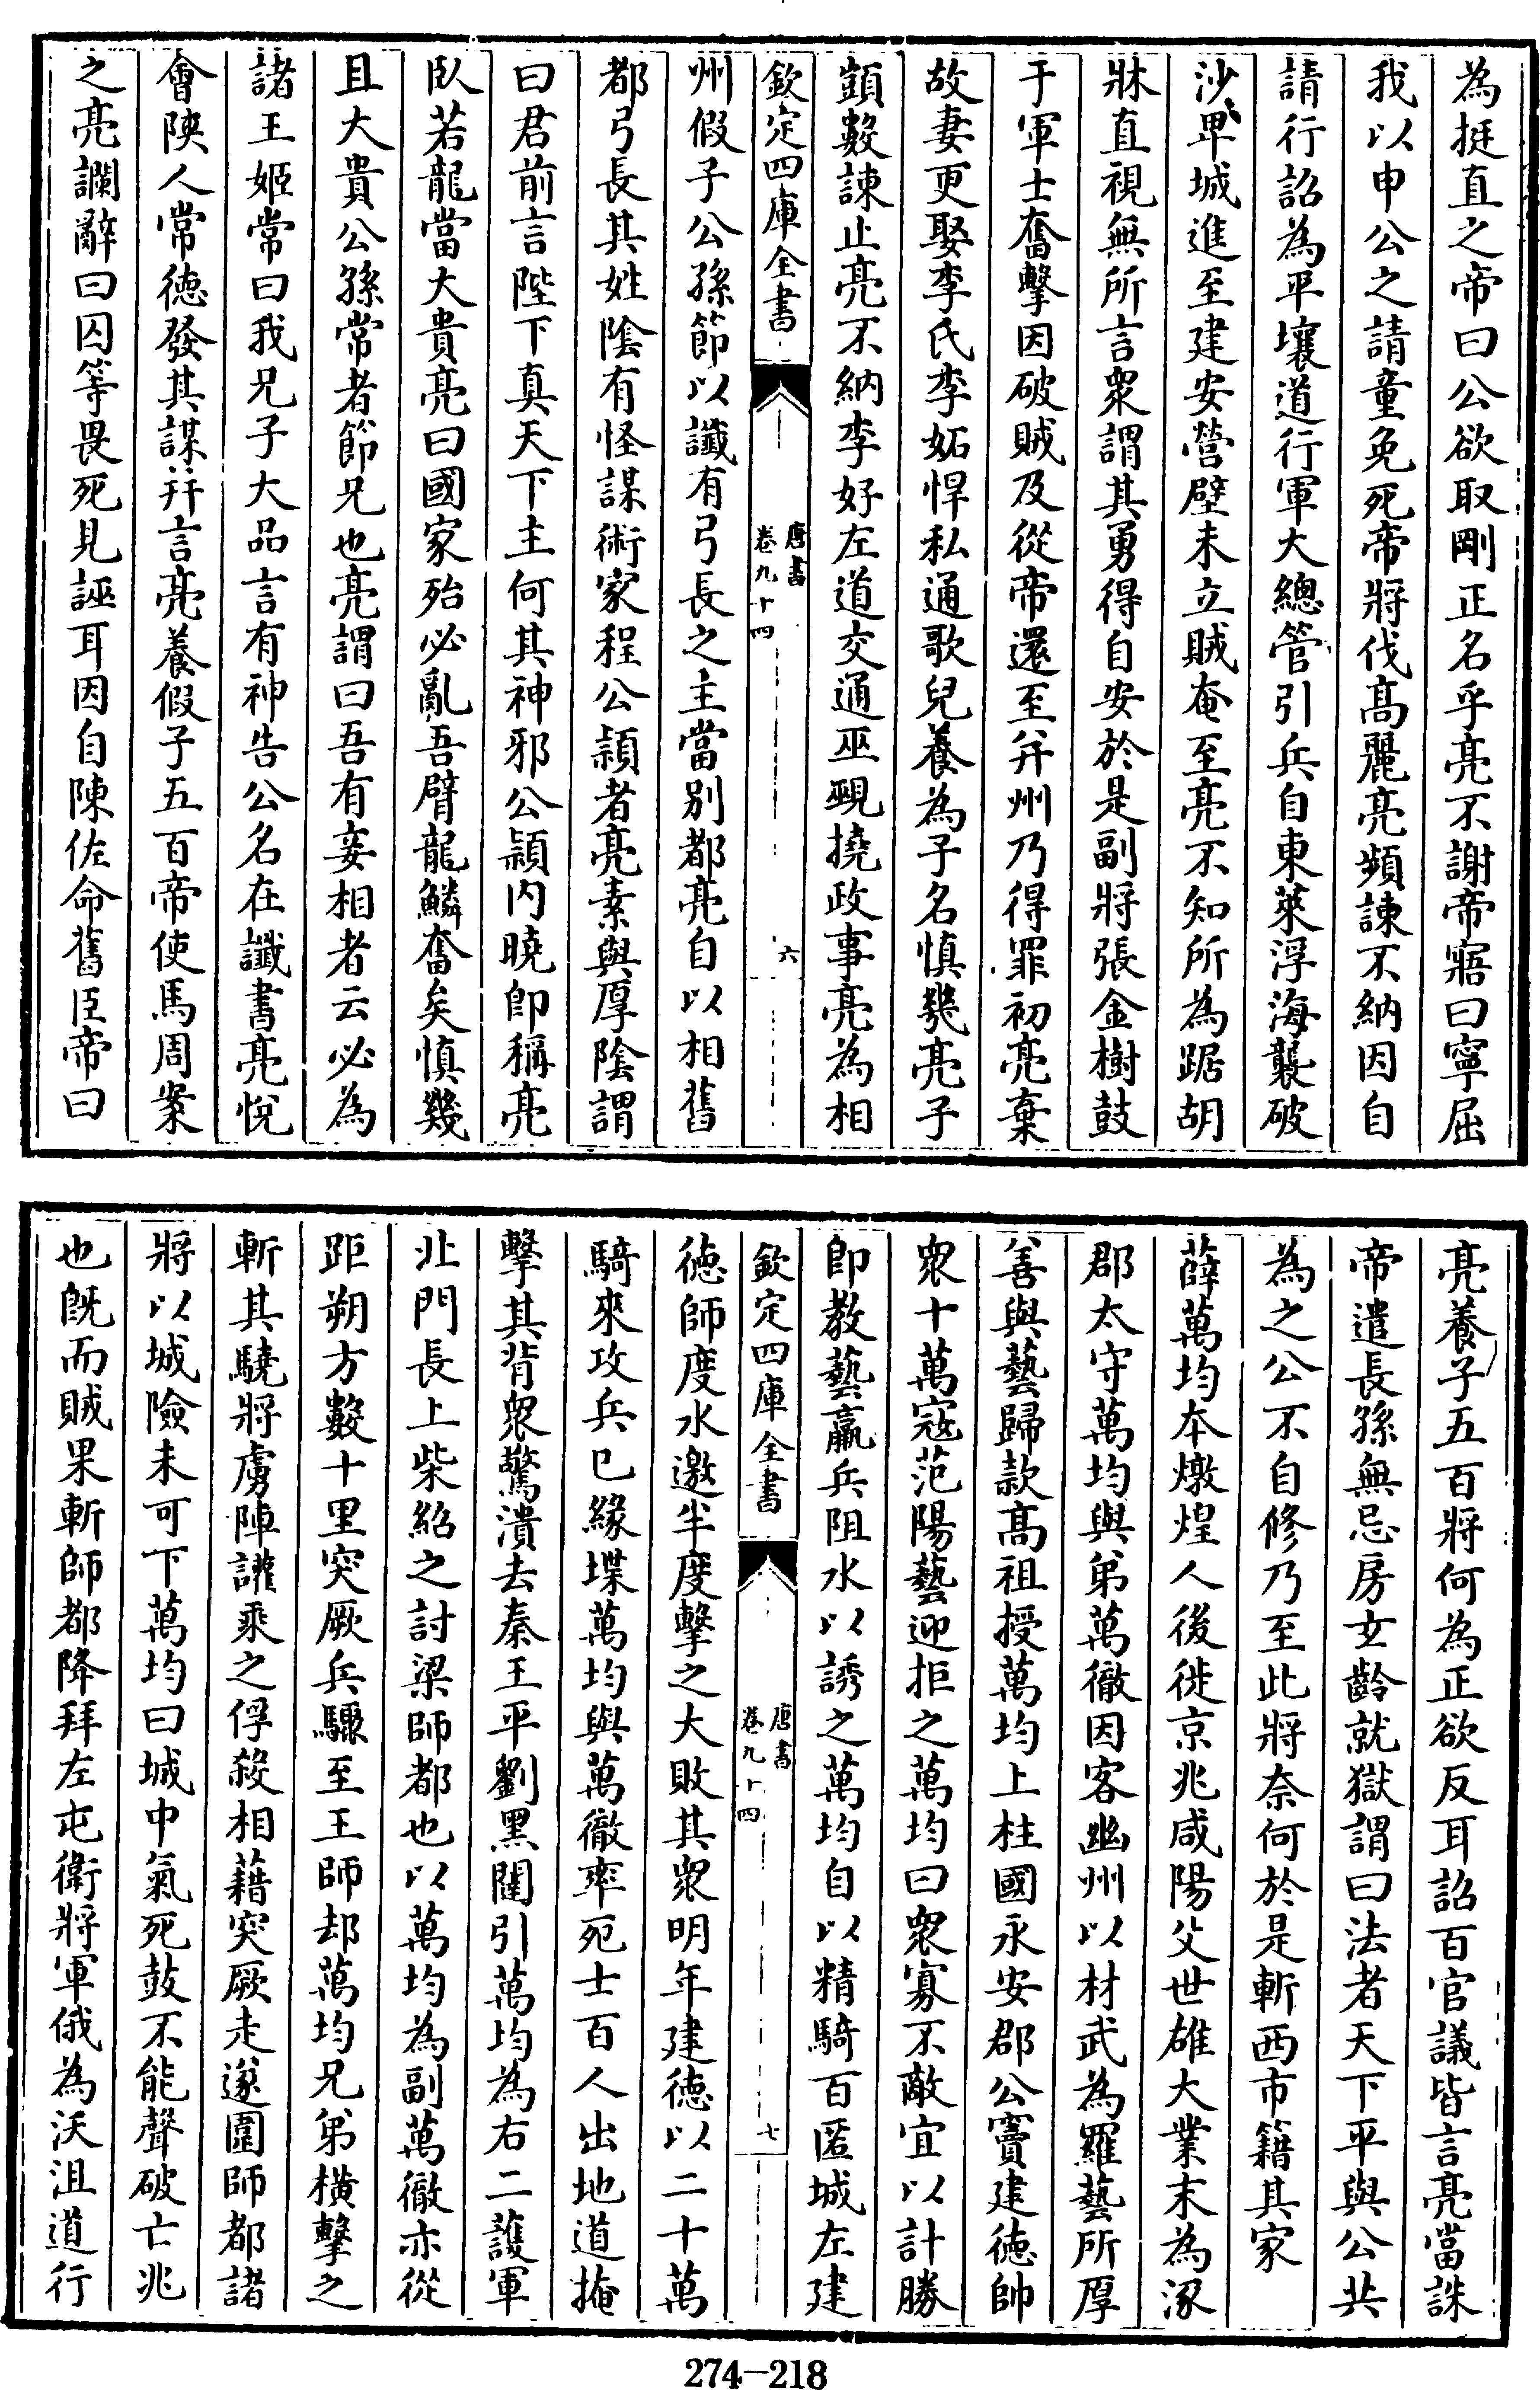 為挺直之帝曰公欲取剛正名乎亮不謝帝寤曰寧屈
我以申公之請童免死帝將伐髙麗亮頻諫不納因自
請行詔為平壤道行軍大總管引兵自東萊浮海襲破
沙卑城進至建安營壁未立賊奄至亮不知所為踞胡
牀直視無所言衆謂其勇得自安於是副將張金樹鼓
于軍士奮擊因破賊及從帝還至并州乃得罪初亮棄
故妻更娶李氏李妬悍私通歌兒養為子名慎幾亮子
顗數諫止亮不納李好左道交通巫覡撓政事亮為相
欽定四庫全書
唐書
卷九十四
六
州假子公孫節以讖有弓長之主當别都亮自以相舊
都弓長其姓陰有怪謀術家程公頴者亮素與厚陰謂
曰君前言陛下真天下主何其神邪公頴内曉即稱亮
臥若龍當大貴亮曰國家殆必亂吾臂龍鱗奮矣慎幾
且大貴公孫常者節兄也亮謂曰吾有妾相者云必為
諸王姬常曰我兄子大品言有神告公名在讖書亮悅
會陜人常徳發其謀并言亮養假子五百帝使馬周案
之亮讕辭曰囚等畏死見誣耳因自陳佐命舊臣帝曰
亮養子五百將何為正欲反耳詔百官議皆言亮當誅
帝遣長孫無忌房玄齡就獄謂曰法者天下平與公共
為之公不自修乃至此將奈何於是斬西市籍其家
薛萬均本燉煌人後徙京兆咸陽父世雄大業末為涿
郡太守萬均與弟萬徹因客幽州以材武為羅藝所厚
善與藝歸款髙祖授萬均上柱國永安郡公竇建徳帥
衆十萬寇范陽藝迎拒之萬均曰衆寡不敵宜以計勝
即教藝羸兵阻水以誘之萬均自以精騎百匿城左建
欽定四庫全書
唐書
卷九十四
七
徳師度水邀半度擊之大敗其衆明年建徳以二十萬
騎來攻兵已緣堞萬均與萬徹率死士百人出地道掩
擊其背衆驚潰去秦王平劉黑闥引萬均為右二護軍
北門長上柴紹之討梁師都也以萬均為副萬徹亦從
距朔方數十里突厥兵驟至王師却萬均兄弟横擊之
斬其驍將虜陣讙乘之俘殺相藉突厥走遂圍師都諸
將以城險未可下萬均曰城中氣死鼔不能聲破亡兆
也既而賊果斬師都降拜左屯衛將軍俄為沃沮道行
274-218